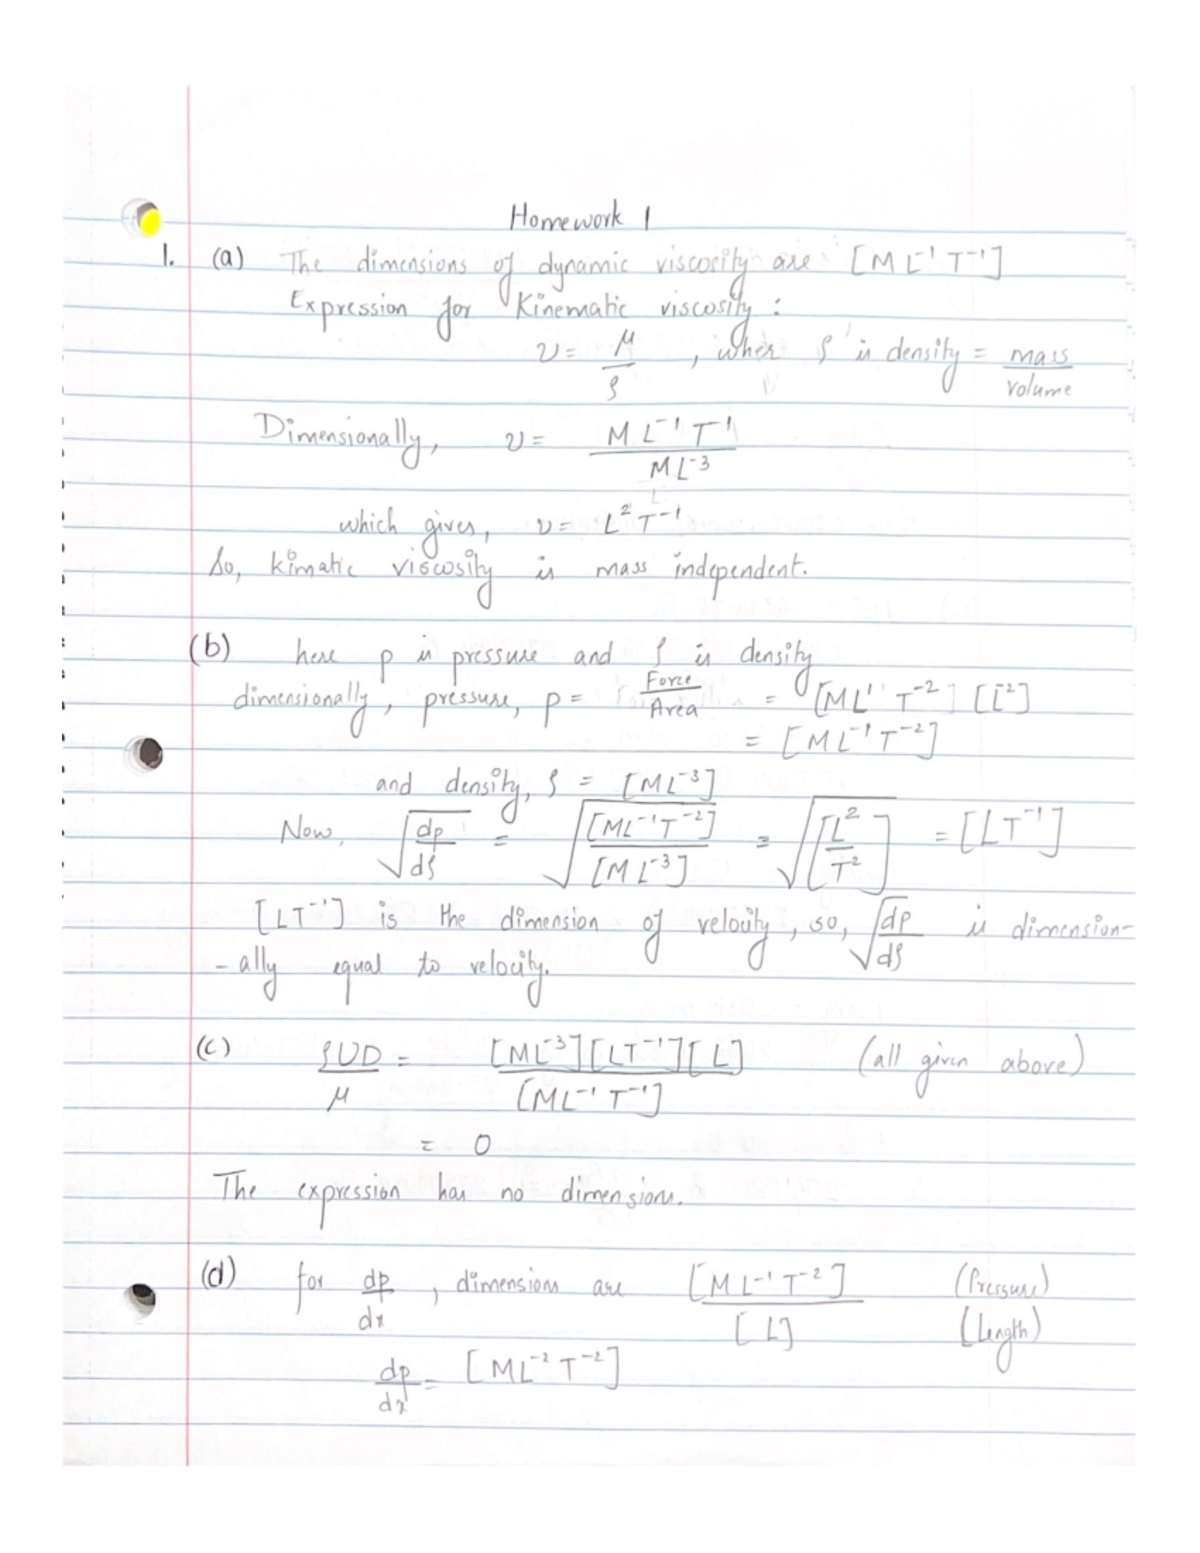 Homework 1
1. (a) The dimensions of dynamic viscosity are [M L⁻¹ T⁻¹]
Expression for Kinematic viscosity :
ν = μ/ρ , wher ρ is density = mass/volume
Dimensionally, ν = M L⁻¹ T¹ / M L⁻³
which gives, ν = L² T⁻¹
So, kimatic viscosity is mass independent.
(b) here p is pressure and ρ is density
dimensionally, pressure, p = Force/Area = [M L¹ T⁻²] [L²]
= [M L⁻¹ T⁻²]
and density, ρ = [M L⁻³]
Now, √(dp/dρ) = √([ML⁻¹T⁻²]/[ML⁻³]) = √[L²/T²] = [LT⁻¹]
[LT⁻¹] is the dimension of velocity, so, √(dp/dρ) is dimension-
-ally equal to velocity.
(c) ρUD/μ = [ML⁻³][LT⁻¹][L] / [ML⁻¹T⁻¹] (all given above)
= 0
The expression has no dimensions.
(d) for dp/dx , dimensions are [M L⁻¹ T⁻²] / [L] (Pressure) (Length)
dp/dx = [ML⁻² T⁻²]